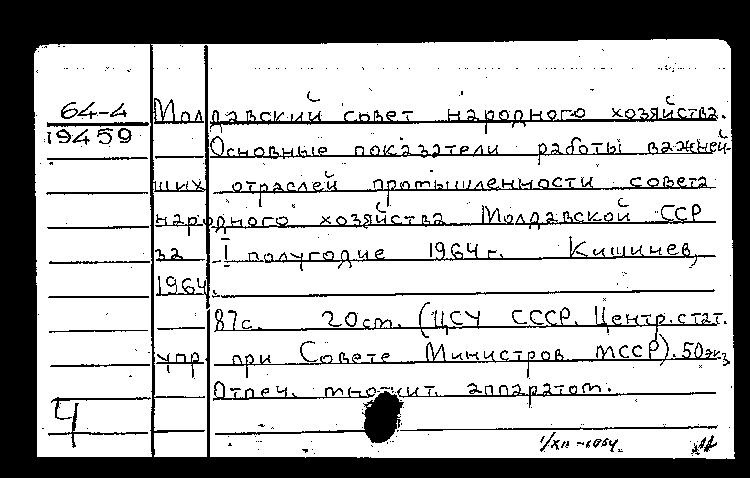 64-4 Молдавский совет народного хозяйства.
19459
Основные показатели работы важней-
ших отраслей промышленности совета
народного хозяйства Молдавской ССР
за I полугодие 1964г. Кишинев,
1964.
87с. 20см. (ЦСУ СССР. Центр.стат.
упр. при Совете Министров МССР). 50экз
Отпеч. множит. аппаратом.
Ч